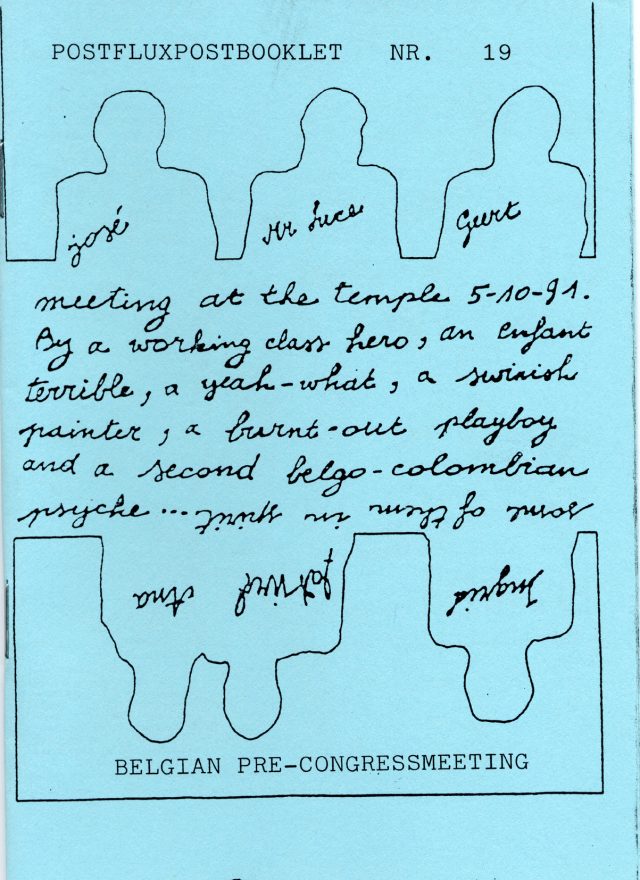 POSTFLUXPOSTBOOKLET NR. 19
josé Mr Luce Geert
meeting at the temple 5-10-91.
By a working class hero, an enfant
terrible, a yeah-what, a swinish
painter, a burnt-out playboy
and a second belgo-colombian
psyche ... some of them in spirit
Ingrid Ana
BELGIAN PRE-CONGRESSMEETING